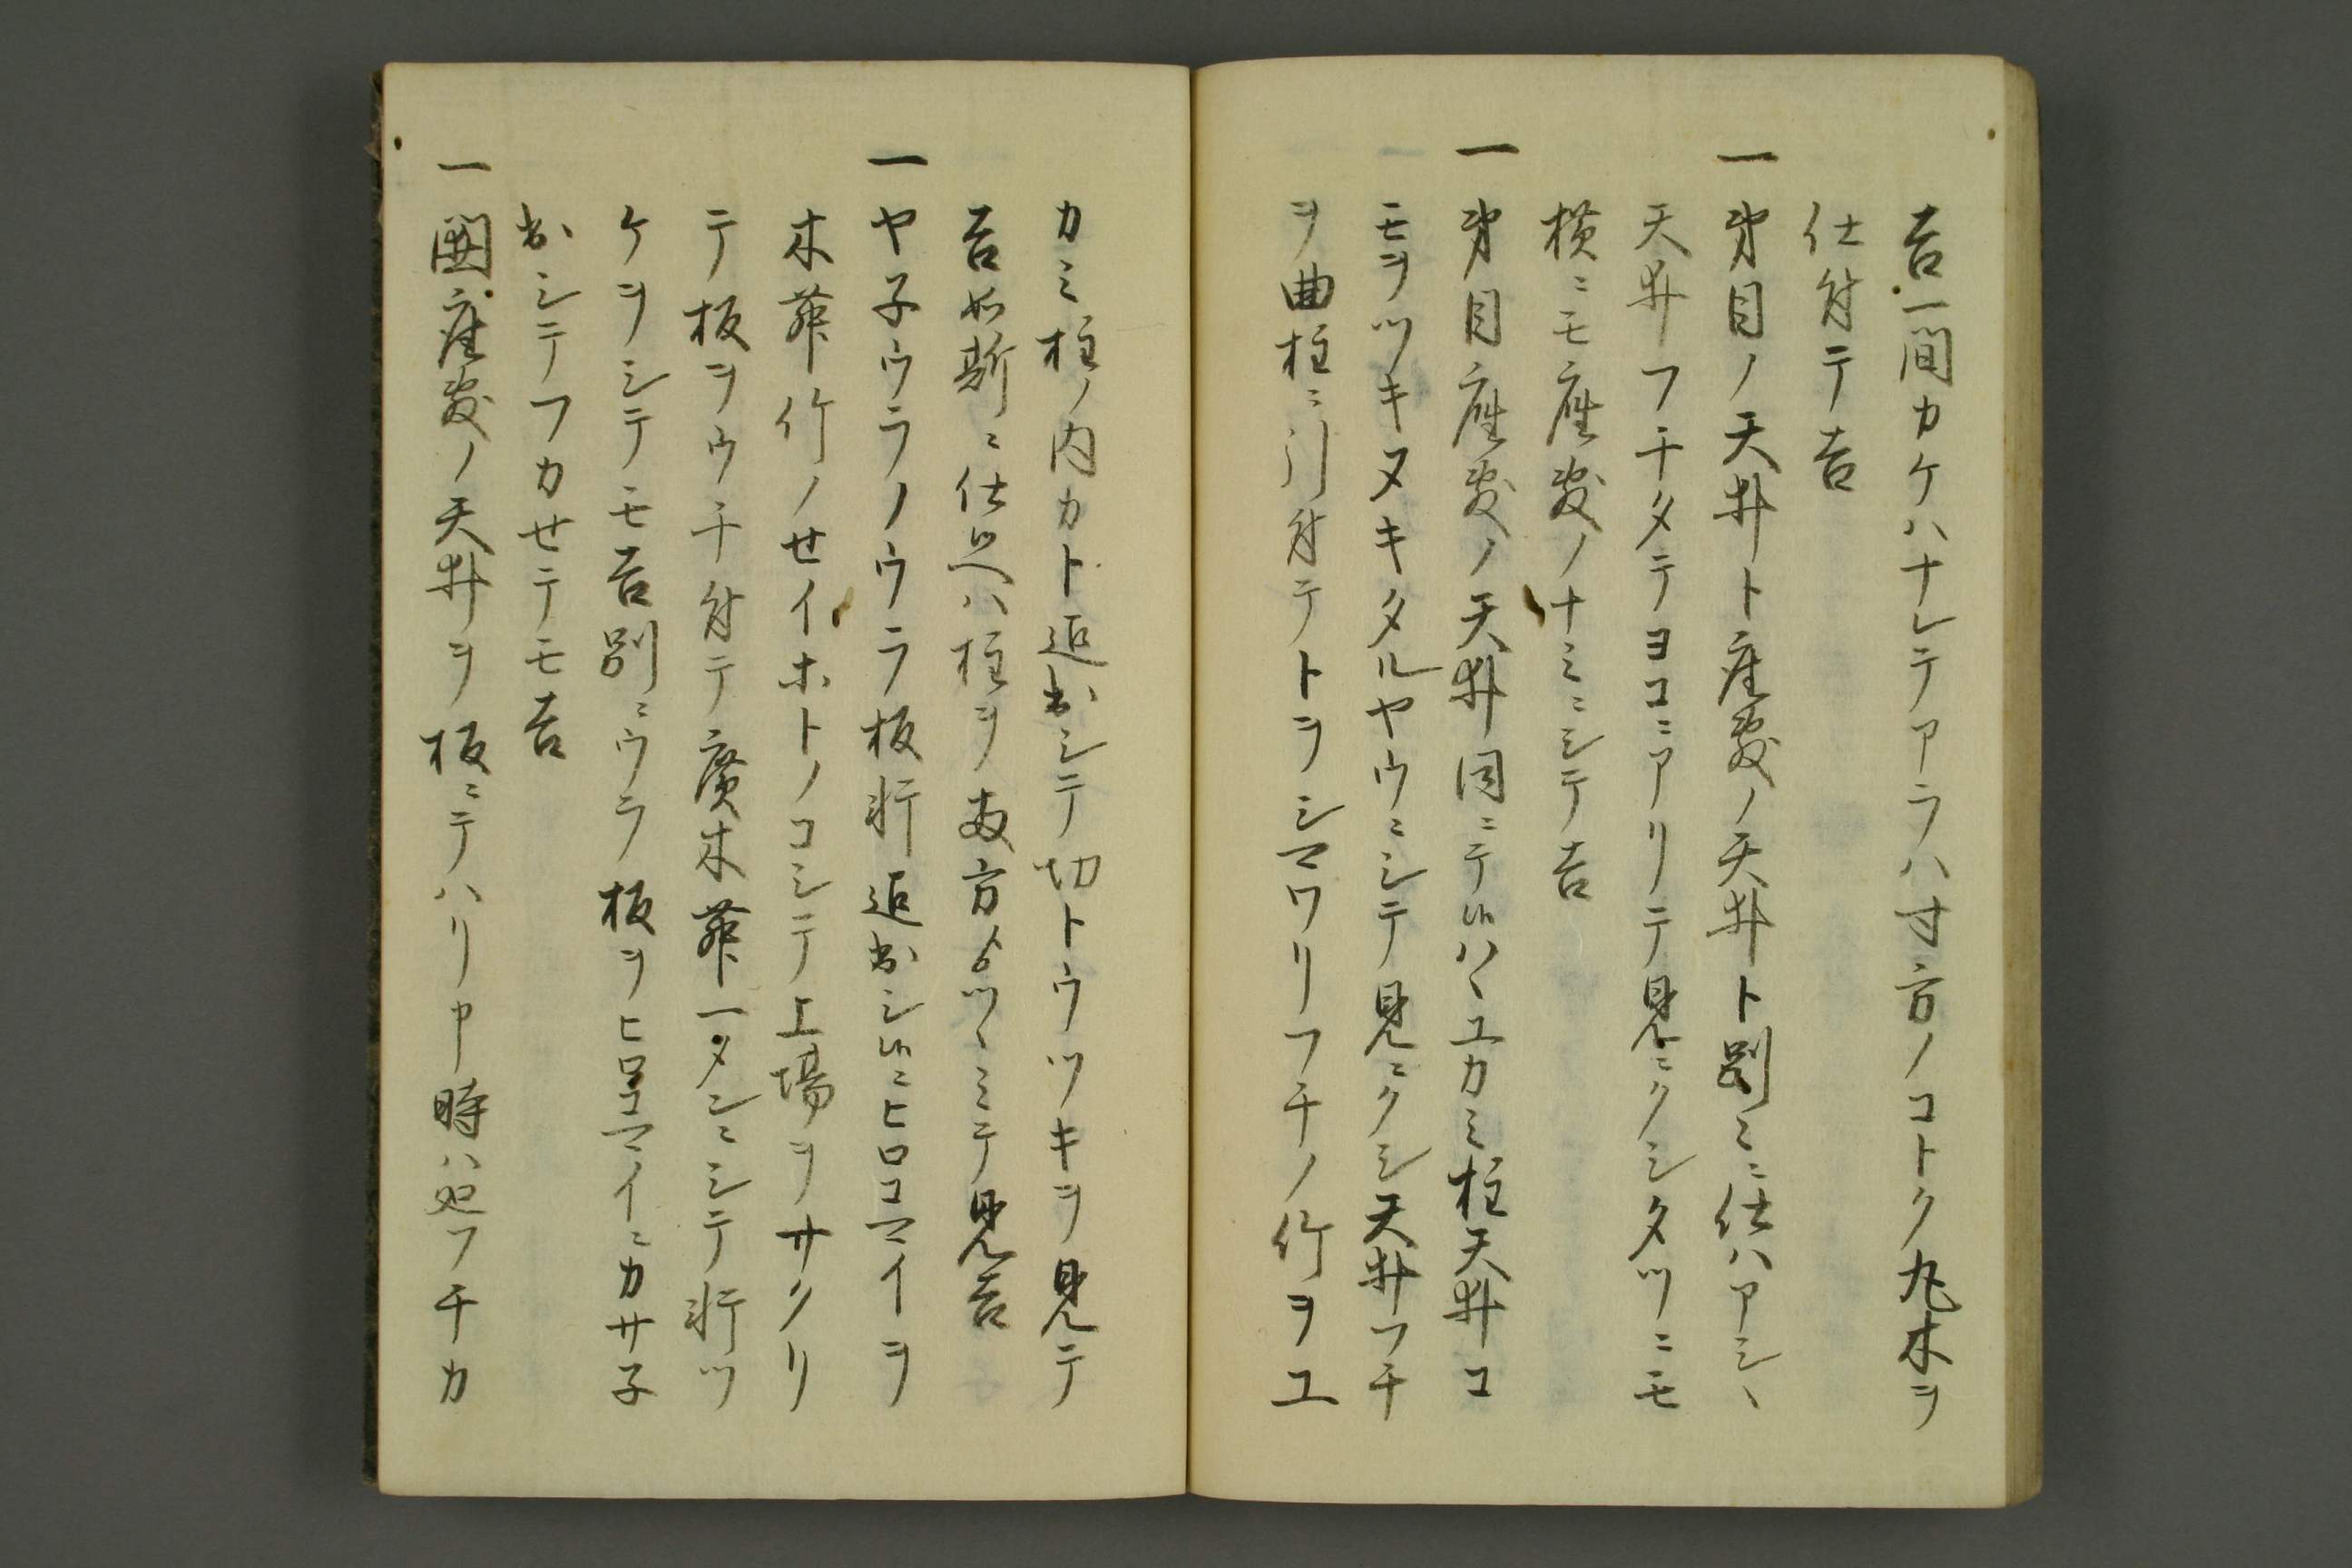 吉一間カケハナレテアラハ寸方ノコトク丸木ヲ
仕付テ吉
一 臺目ノ天井ト座敷ノ天井ト別ミニ仕ハアシヽ
天井フチタテヨコニアリテ見ニクシタツニモ
横ニモ座敷ノナミニシテ吉
一 臺目座敷ノ天井同ニテ候ハヽユカミ柱天井コ
モヲツキヌキタルヤウニシテ見ニクシ天井フチ
ヲ曲柱ニ引付テトヲシマワリフチノ竹ヲユ
カミ柱ノ内カト迄出シテ切トウツキヲ見テ
吉如斯ニ仕候ヘハ柱ヲ両方ヨリツヽミテ見吉
一 ヤ子ウラノウラ板軒迄出シ候ニヒロコマイヲ
木舞竹ノセイホトノコシテ上場ヲサクリ
テ板ヲウチ付テ廣木舞一タンニシテ軒ツ
ケヲシテモ吉別ニウラ板ヲヒロコマイニカサ子
出シテフカセテモ吉
一 囲座敷ノ天井ヲ板ニテハリ申時ハ竿フチカ